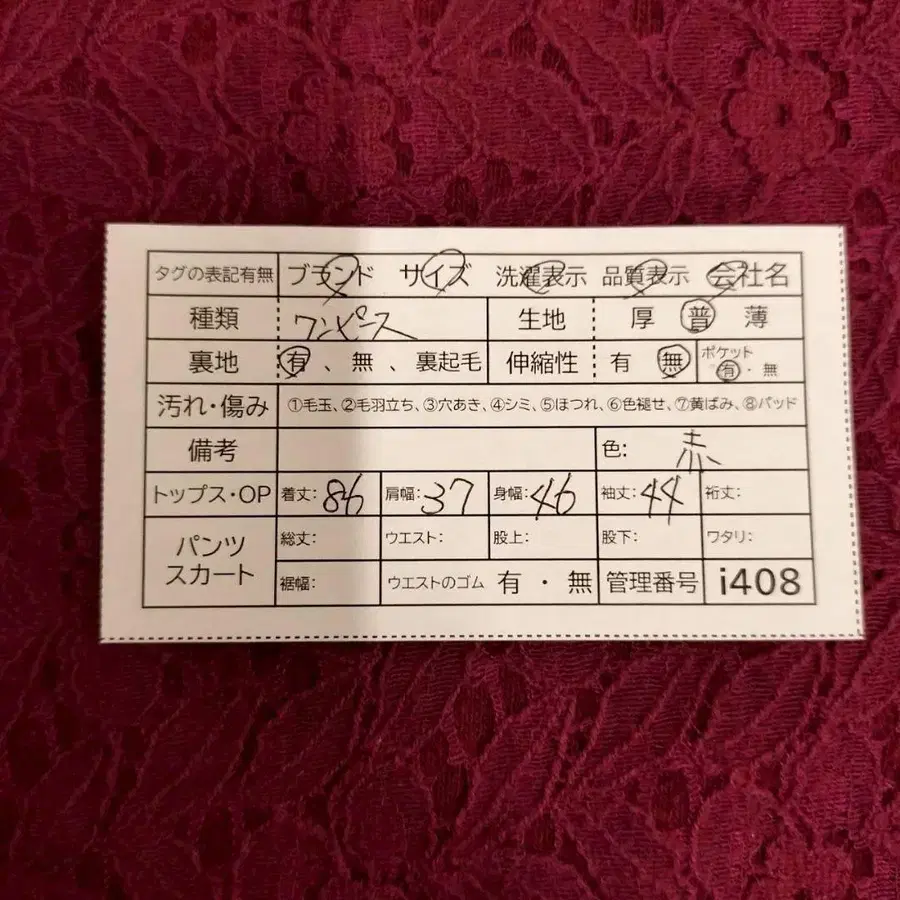 タグの表記有無 ブランド サイズ 洗濯表示 品質表示 会社名
種類 ワンピース 生地 厚 普 薄
裏地 有 、 無 、 裏起毛 伸縮性 有 無 ポケット 有 ・ 無
汚れ・傷み ①毛玉、②毛羽立ち、③穴あき、④シミ、⑤ほつれ、⑥色褪せ、⑦黄ばみ、⑧パッド
備考 色: 赤
トップス・OP 着丈: 86 肩幅: 37 身幅: 46 袖丈: 44 裄丈:
パンツ スカート 総丈: ウエスト: 股上: 股下: ワタリ:
裾幅: ウエストのゴム 有 ・ 無 管理番号 i408